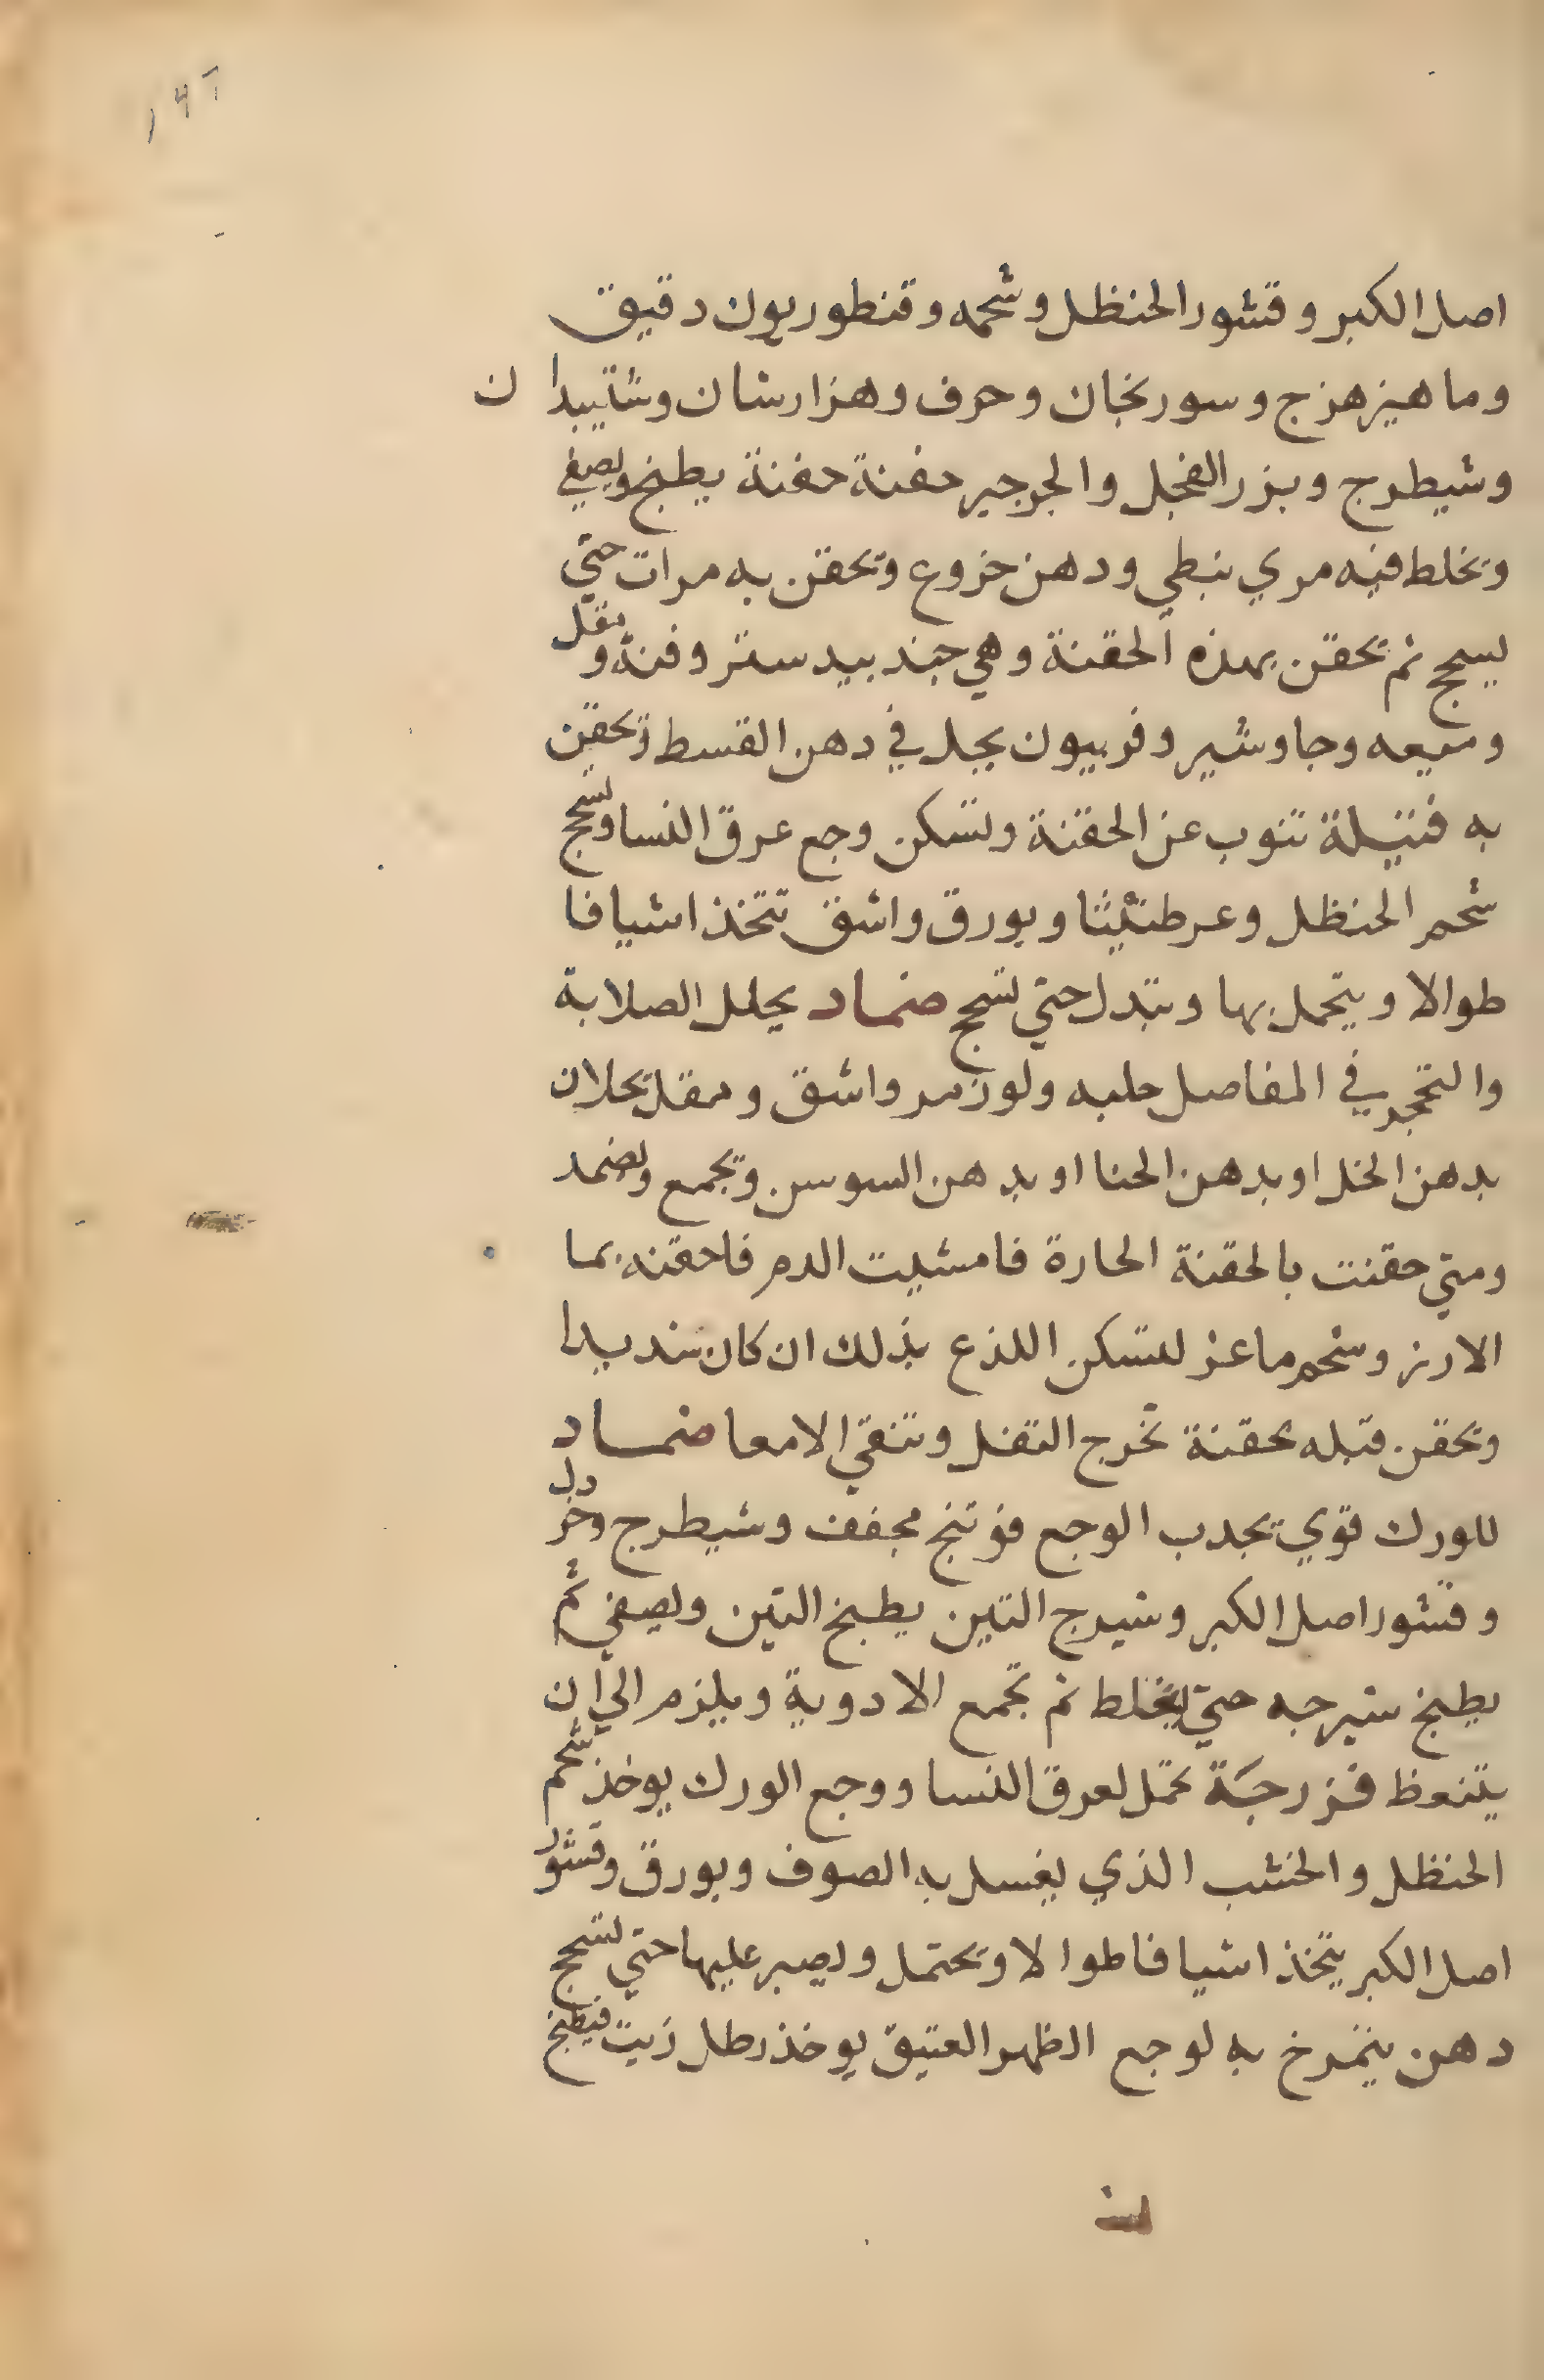 اصل الكبر وقشور الحنظل وشحمه وقنطوريون دقيق
وماهيزهزج وسورنجان وحرف وهزارشان وشتيبدان
وشيطرج وبزر الفجل والجرجير حفنة حفنة يطبخ ويصفي
ويخلط فيه مري نبطي ودهن خروع ويحقن به مرات حتي
يسحج ثم يحقن بهذه الحقنة وهي جندبيدستر وقنه ومقل
وميعه وجاوشير وفربيون يحل في دهن القسط ويحقن
به فتيلة تنوب عن الحقنة وتسكن وجع عرق النسا وتسحج
شحم الحنظل وعرطنيثا وبورق واشق تتخذ اشيافا
طوالا ويتحمل بها وتبدل حتي تسحج ضماد يحلل الصلابة
والتحجر في المفاصل حلبه ولوز مر واشق ومقل يحلان
بدهن الخل او بدهن الحنا او بدهن السوسن ويجمع ويضمد
ومتي حقنت بالحقنة الحارة فامشيت الدم فاحقنه بما
الارز وشحم ماعز لتسكن اللذع بذلك ان كان شديدا
ويحقن قبله بحقنة تخرج الثفل وتنقي الامعا ضماد
للورك قوي يجدب الوجع فوتنج مجفف وشيطرج وخردل
وقشور اصل الكبر وشيرج التين يطبخ التين ويصفي ثم
يطبخ شيرجه حتي يغلظ ثم تجمع الادوية ويلزم الي ان
يتنفط فزرجة تحمل لعرق النسا ووجع الورك يوخذ شحم
الحنظل والخشب الذي يغسل به الصوف وبورق وقشور
اصل الكبر يتخذ اشيافا طوالا ويحتمل ويصبر عليها حتي تسحج
دهن يتمرخ به لوجع الظهر العتيق يوخذ رطل زيت فيطبخ